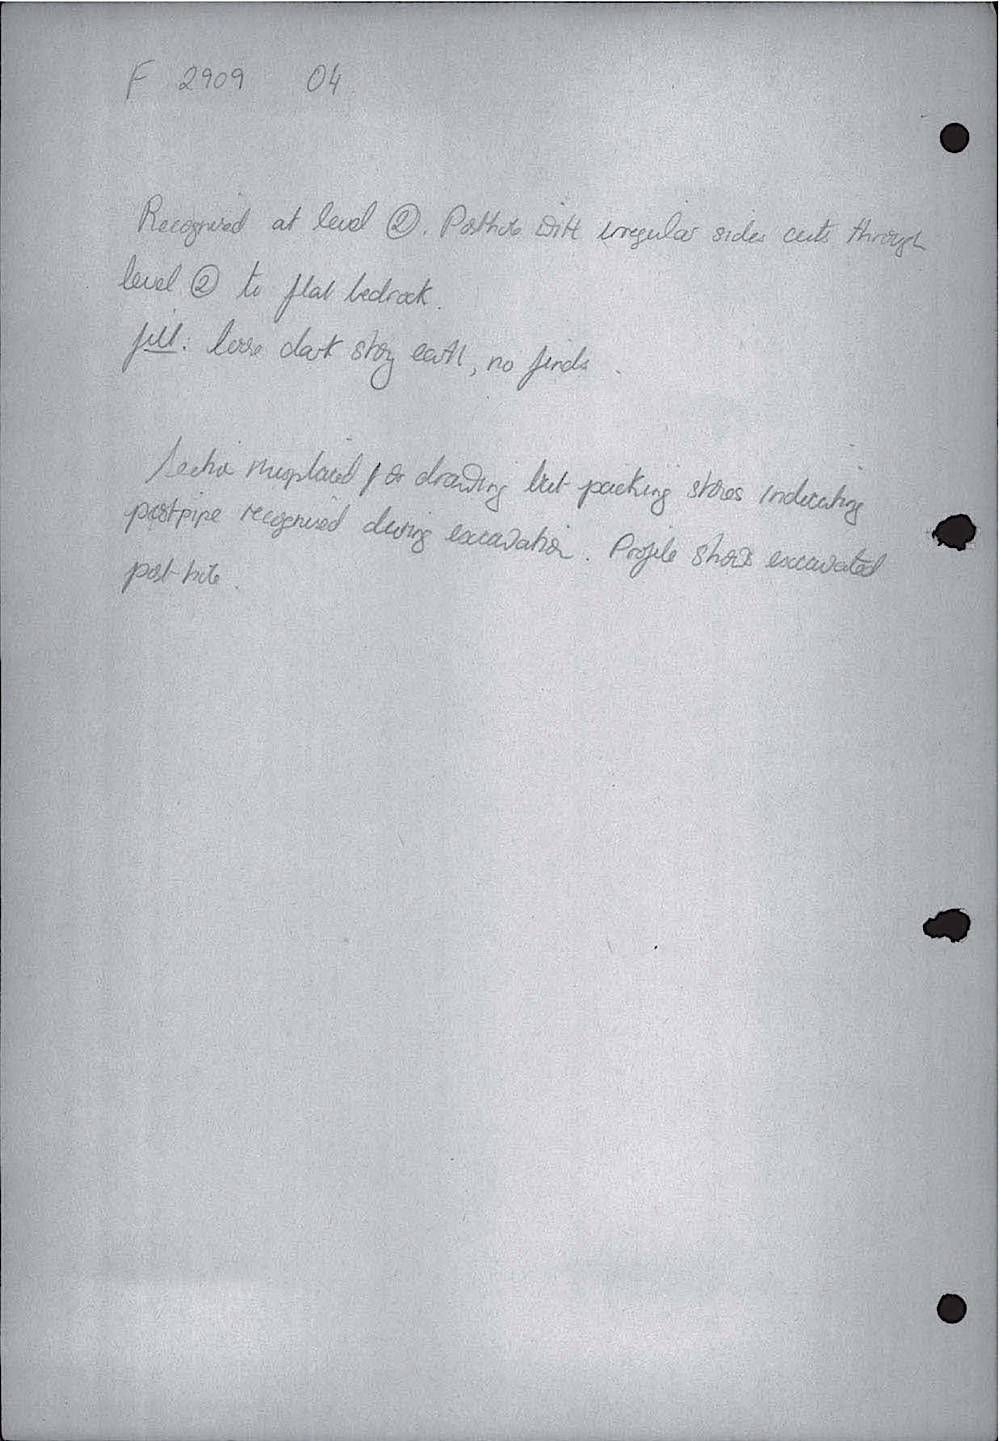 F 2909 04
Recognised at level ②. Posthole with irregular sides cuts through
level ② to flat bedrock.
fill: loose dark stony earth, no finds.
Section misplaced for drawing but packing stones indicating
postpipe recognised during excavation. Profile shows excavated
post-hole.